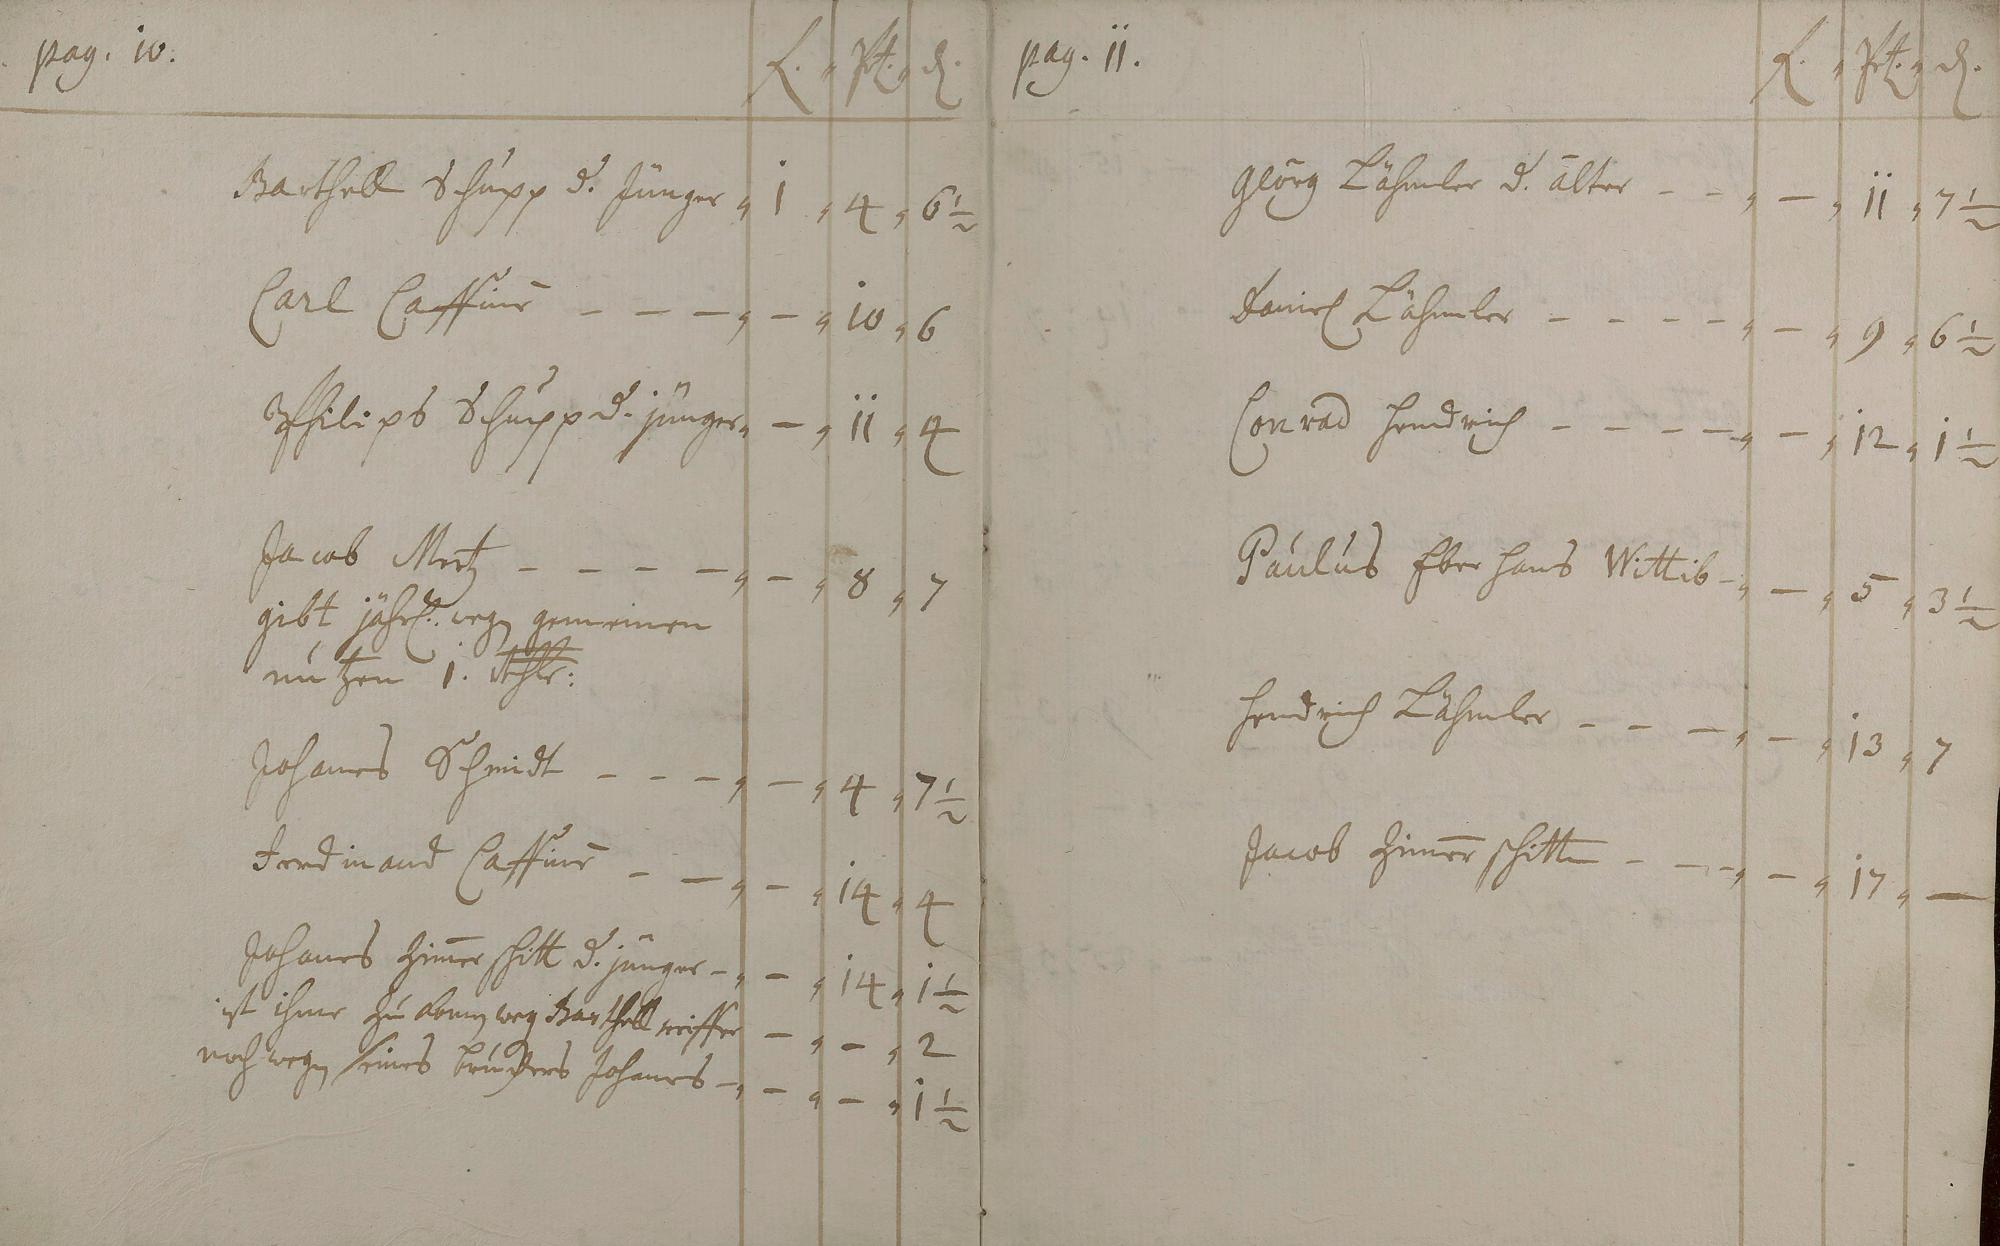 pag. 10.
f. " " d.
Barthell Schupp d. Jünger " 1 " 4 " 6 1/2
Carl Caffine - - - " - " 10 " 6
Philips Schupp d. jünger " - " 11 " 4
Jacob Mertz - - - - - " - " 8 " 7
gibt jährl. wegn gemeinen
nutzen 1. Rthlr:
Johannes Schmidt - - - " - " 4 " 7 1/2
Ferdinand Caffine - - " - " 14 " 4
Johannes Zimmerschitt d. jünger - " - " 14 " 1 1/2
ist ihme zu komen weg Barthell - " - " 2
noch wegn seines bruders Johannes - " - " - " 1 1/2
pag. 11.
f. " " d.
Georg Lähmler d. älter - - " - " 11 " 7 1/2
Daniel Lähmler - - - - " - " 9 " 6 1/2
Conrad Hendrich - - - - - " - " 12 " 1 1/2
Paulus Eberhans Wittib - " - " 5 " 3 1/2
Hendrich Lähmler - - - " - " 13 " 7
Jacob Zimmerschitt - - - " - " 17 " -